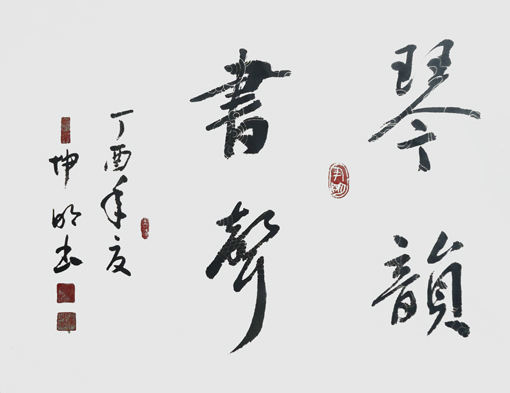 琴韻
書聲
丁酉年夏
坤明书